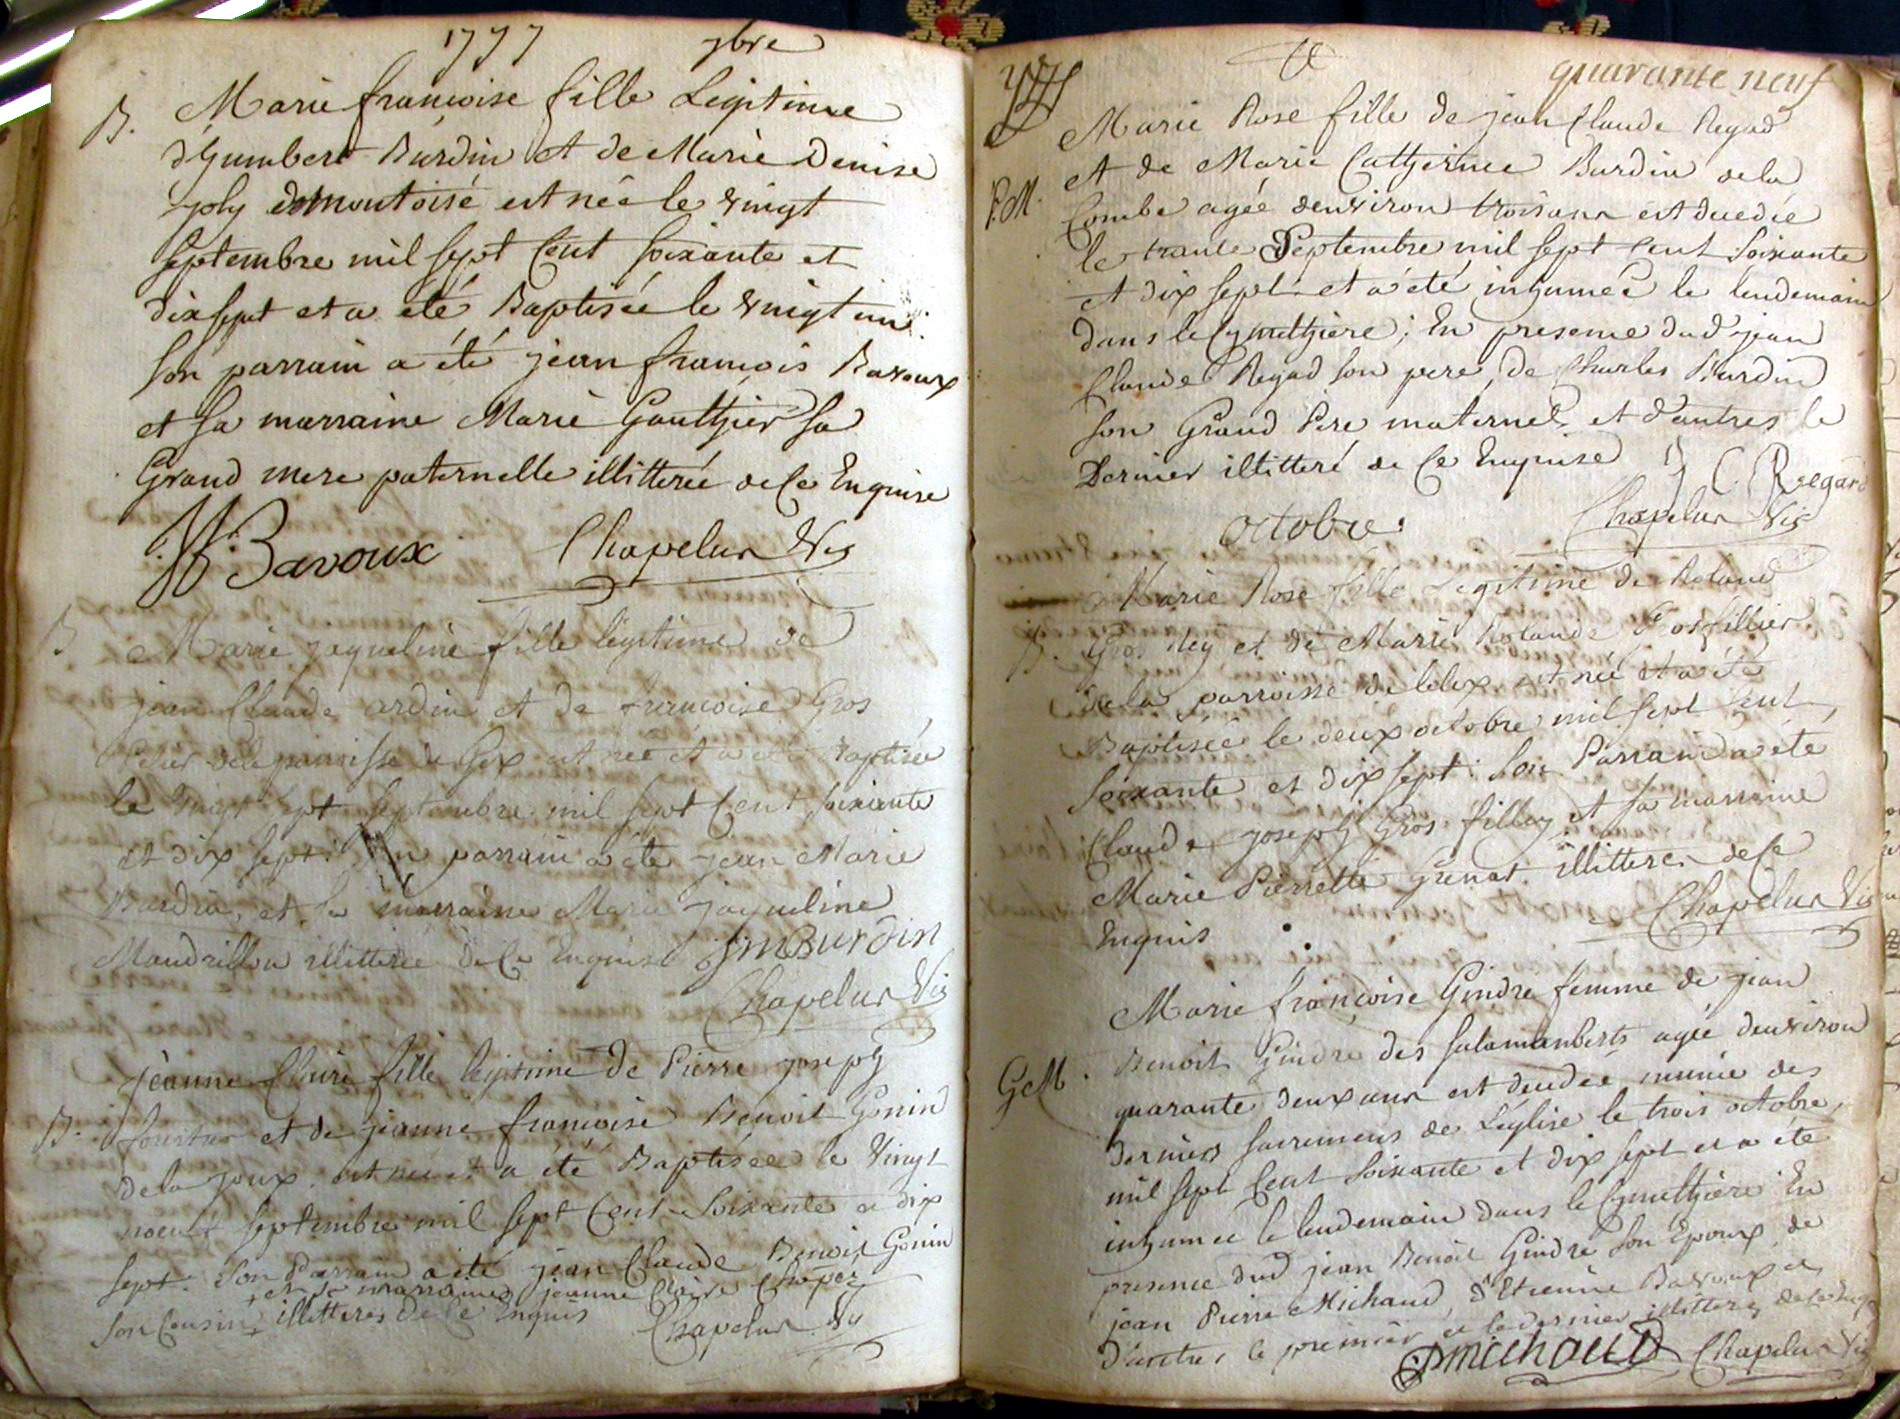 1777 7bre
B. Marie françoise fille Legitime
d'humbert Burdin et de Marie Denise
joly demontoisé est née le vingt
septembre mil sept Cent soixante et
dix sept et a été Baptisée le vingt un
son parrain a été jean françois Bavoux
et sa marraine Marie Gauthier sa
Grand mere paternelle illitterée de ce Enquise
JF Bavoux Chapelur Vic
B Marie jaqueline fille légitime de
jean Claude ardin et de francoise Gros
de la paroisse de Gex est née et a été Baptisée
le vingt sept septembre mil sept Cent soixante
et dix sept. Son parrain a été jean Marie
Burdin, et sa marraine Marie jaqueline
Maudrillon illitterée de Ce Enquise JmBurdin
Chapelur Vic
jeanne Claire fille legitime de Pierre joseph
B. et de jeanne françoise Benoit Gonin
de la joux est née et a été Baptisée le Vingt
noeuf septembre mil sept Cent Soixante et dix
sept. Son Parrain a été jean Claude Benoit Gonin
+ et sa marraine jeanne Claire Chapez
son Cousin + illitteres de Ce Enquis Chapelur Vic
quarante neuf
Marie Rose fille de jean Claude Regad
et de Marie Catherine Burdin de la
P.M. Combe agée denviron trois ans est decedée
le trante Septembre mil sept Cent Soixante
et dix sept et a été inhumée le lendemain
dans le Cymethière; En presence dud jean
Claude Regad son pere, de Charles Burdin
son Grand Pere maternel, et d'autres le
Dernier illitteré de Ce Enquise J C Regard
octobre. Chapelur Vic
Marie Rose fille Legitime de Roland
B. Gros et de Marie Rolande Grosfillier
de la parroisse de lelex est née et a été
Baptisée le deux octobre mil sept Cent
soixante et dix sept: son Parrain a été
Claude joseph Gros filley et sa marraine
Marie Pierrette Grenat illitteres de Ce
Enquis Chapelur Vic
Marie françoise Gindre femme de jean
G.M. Benoit Gindre des salamanberts agée denviron
quarante deux ans est decedée munie des
derniers sacremens de L'église le trois octobre
mil sept Cent soixante et dix sept et a été
inhumée le lendemain dans le Cymethière En
presence dud jean Benoit Gindre son Epoux, de
jean Pierre Michaud, d'Etienne Bavoux et
d'autres le premier et le dernier illitteres de Ce Enquis
JPmichaud Chapelur Vic